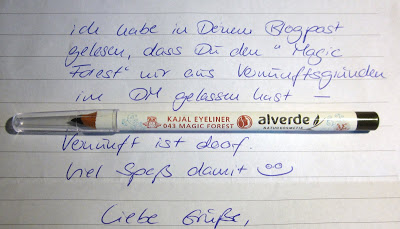 ich habe in Deinem Blogpost
gelesen, dass Du den "Magic
Forest" nur aus Vernunftsgründen
im DM gelassen hast –
KAJAL EYELINER
043 MAGIC FOREST
alverde
NATURKOSMETIK
Vernunft ist doof.
Viel Spaß damit
Liebe Grüße,